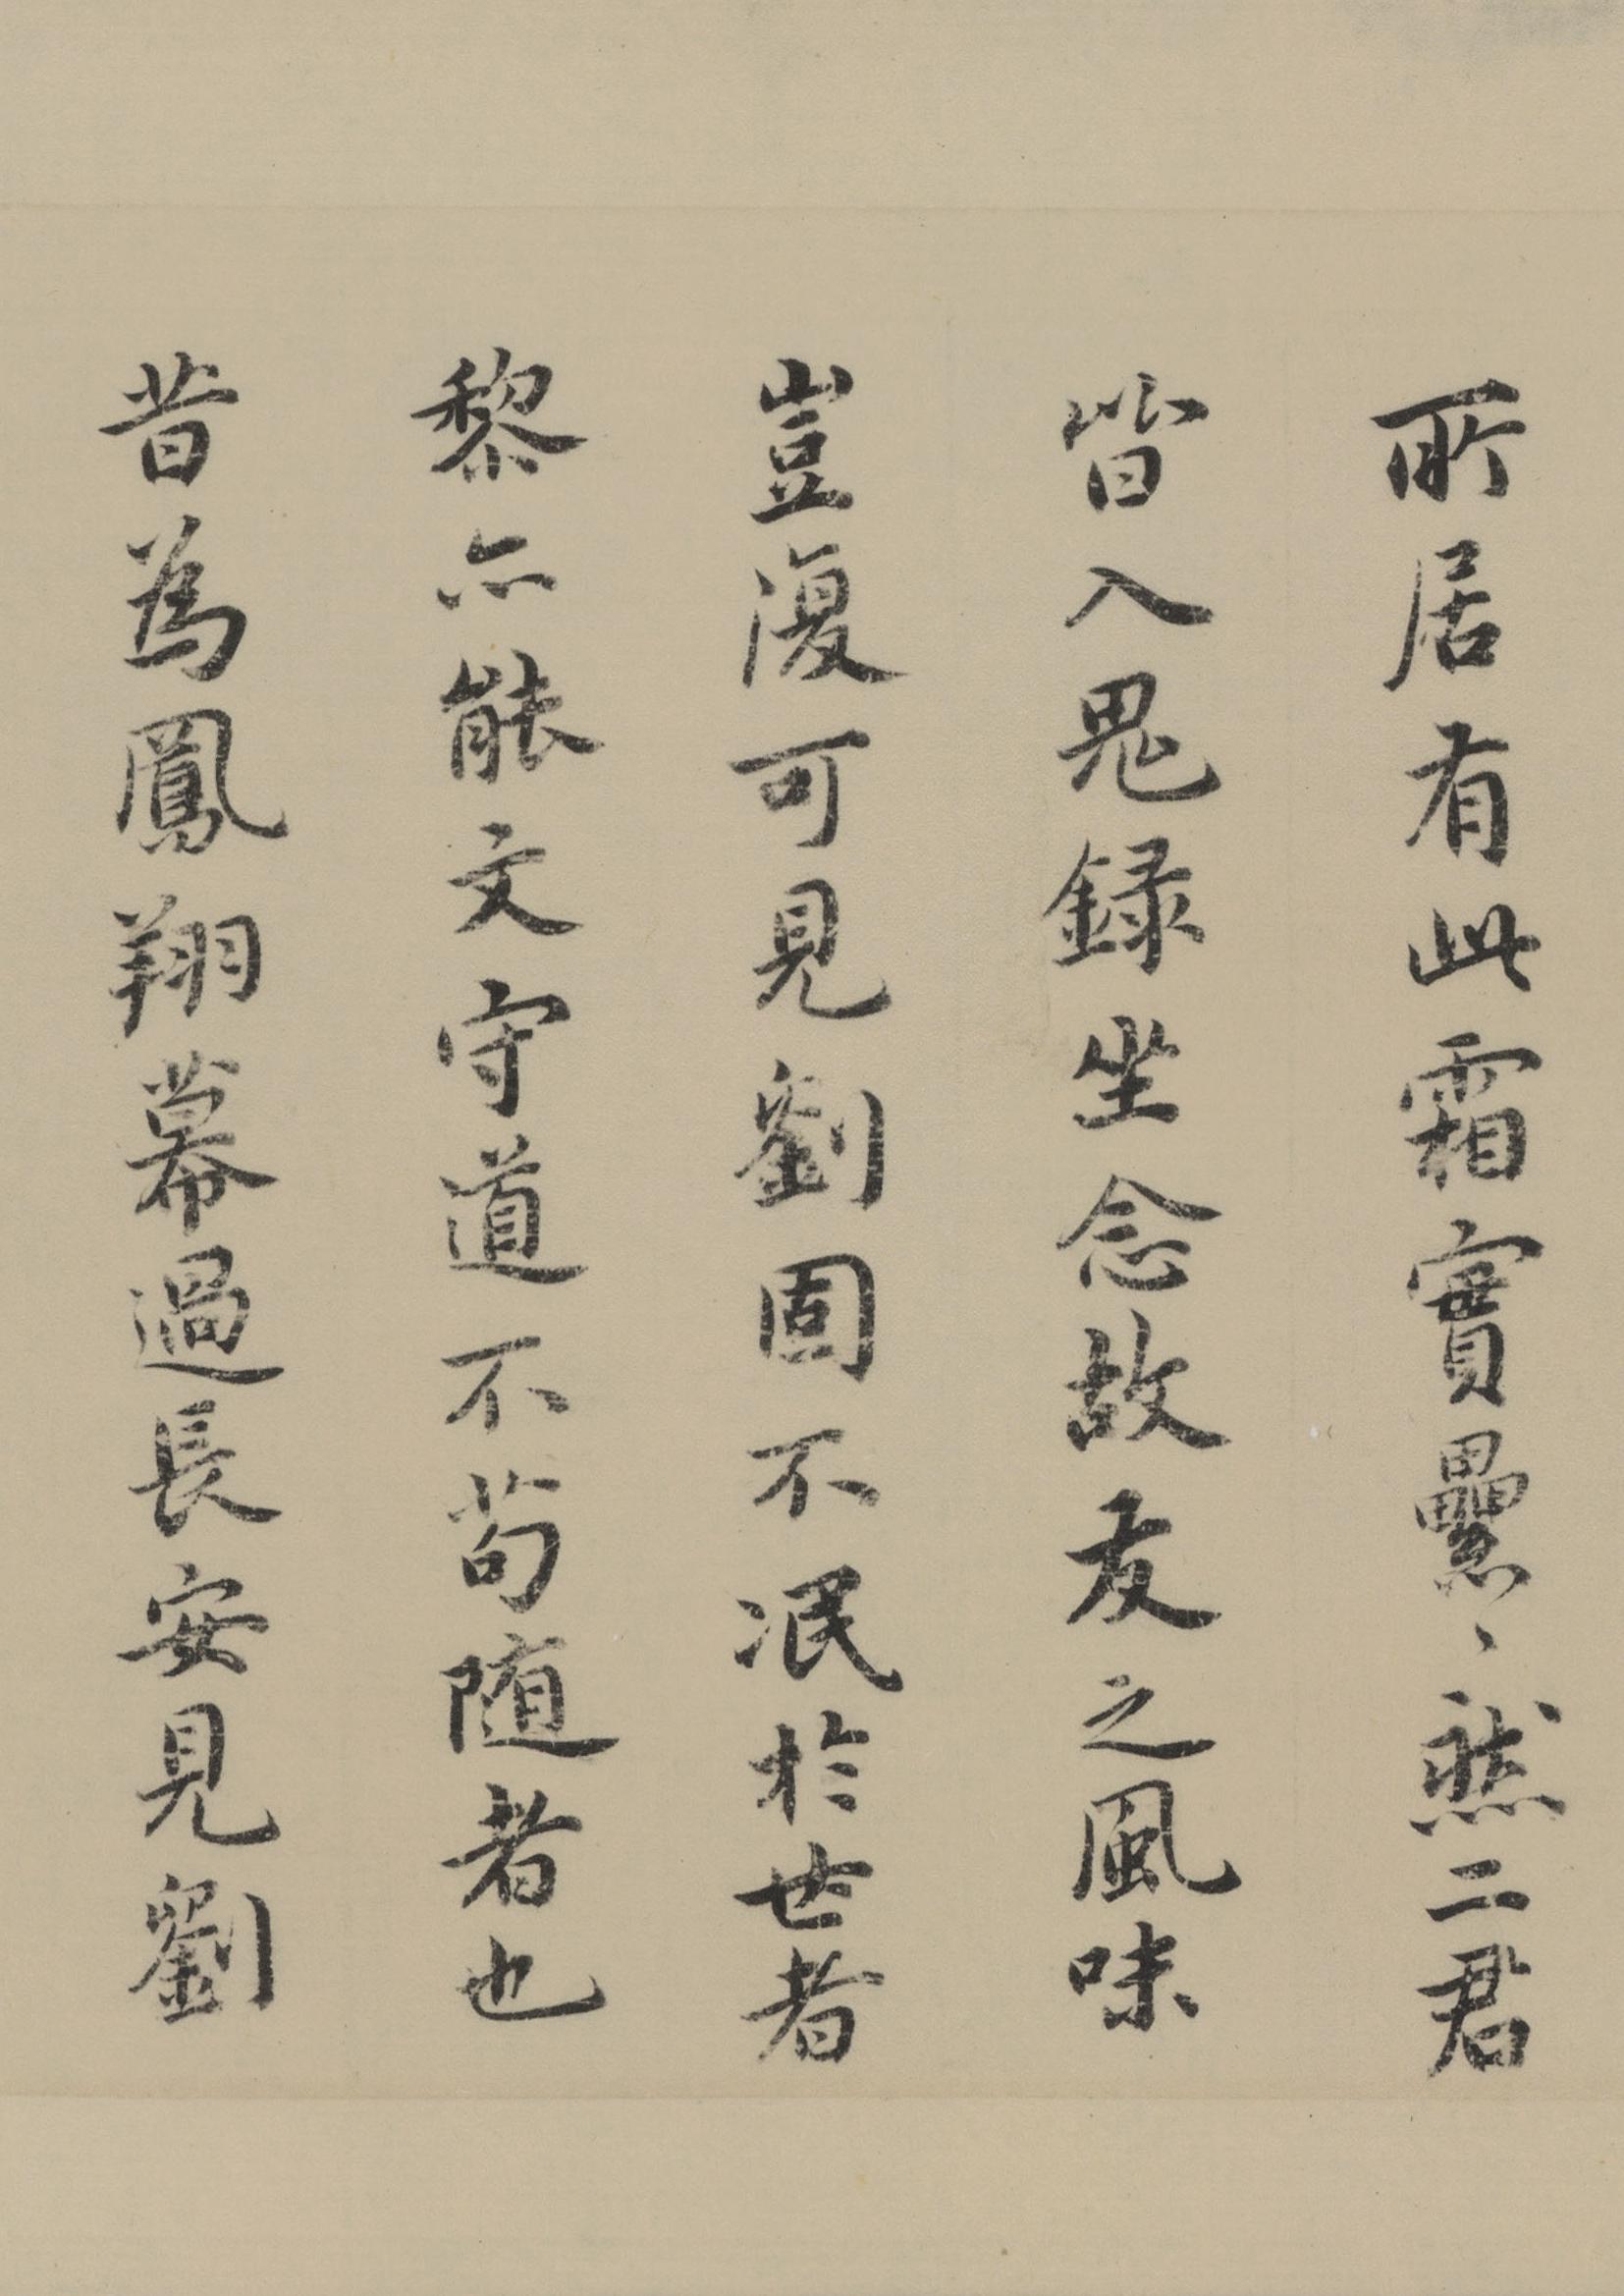 所居有此霜實纍〻然二君
皆入鬼録坐念故友之風味
豈復可見劉固不泯於世者
黎亦能文守道不苟随者也
昔為鳳翔幕過長安見劉